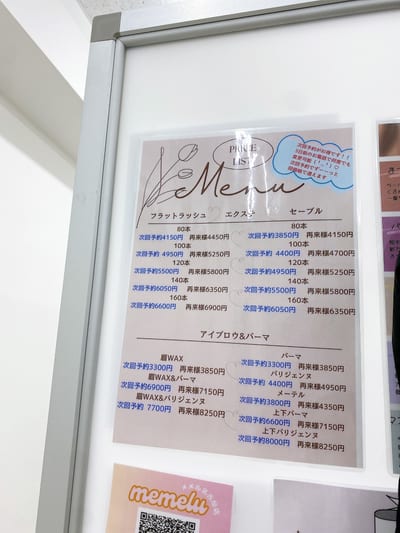 PRICE
LIST
Menu
次回予約がお得です!!
3日前のお電話で何度でも
変更可能(
次回予約でずーーっと
同価格で通えます
フラットラッシュ エクステ セーブル
80本
次回予約4150円 再来様4450円
100本
次回予約 4950円 再来様5250円
120本
次回予約5500円 再来様5800円
140本
次回予約6050円 再来様6350円
160本
次回予約6600円 再来様6900円
80本
次回予約3850円 再来様4150円
100本
次回予約 4400円 再来様4700円
120本
次回予約4950円 再来様5250円
140本
次回予約5500円 再来様5800円
160本
次回予約6050円 再来様6350円
アイブロウ&パーマ
眉WAX
次回予約3300円 再来様3850円
眉WAX&パーマ
次回予約6900円 再来様7150円
眉WAX&パリジェンヌ
次回予約 7700円 再来様8250円
パーマ
次回予約3300円 再来様3850円
パリジェンヌ
次回予約 4400円 再来様4950円
メーテル
次回予約3800円 再来様4350円
上下パーマ
次回予約6600円 再来様7150円
上下パリジェンヌ
次回予約8000円 再来様8250円
memelu